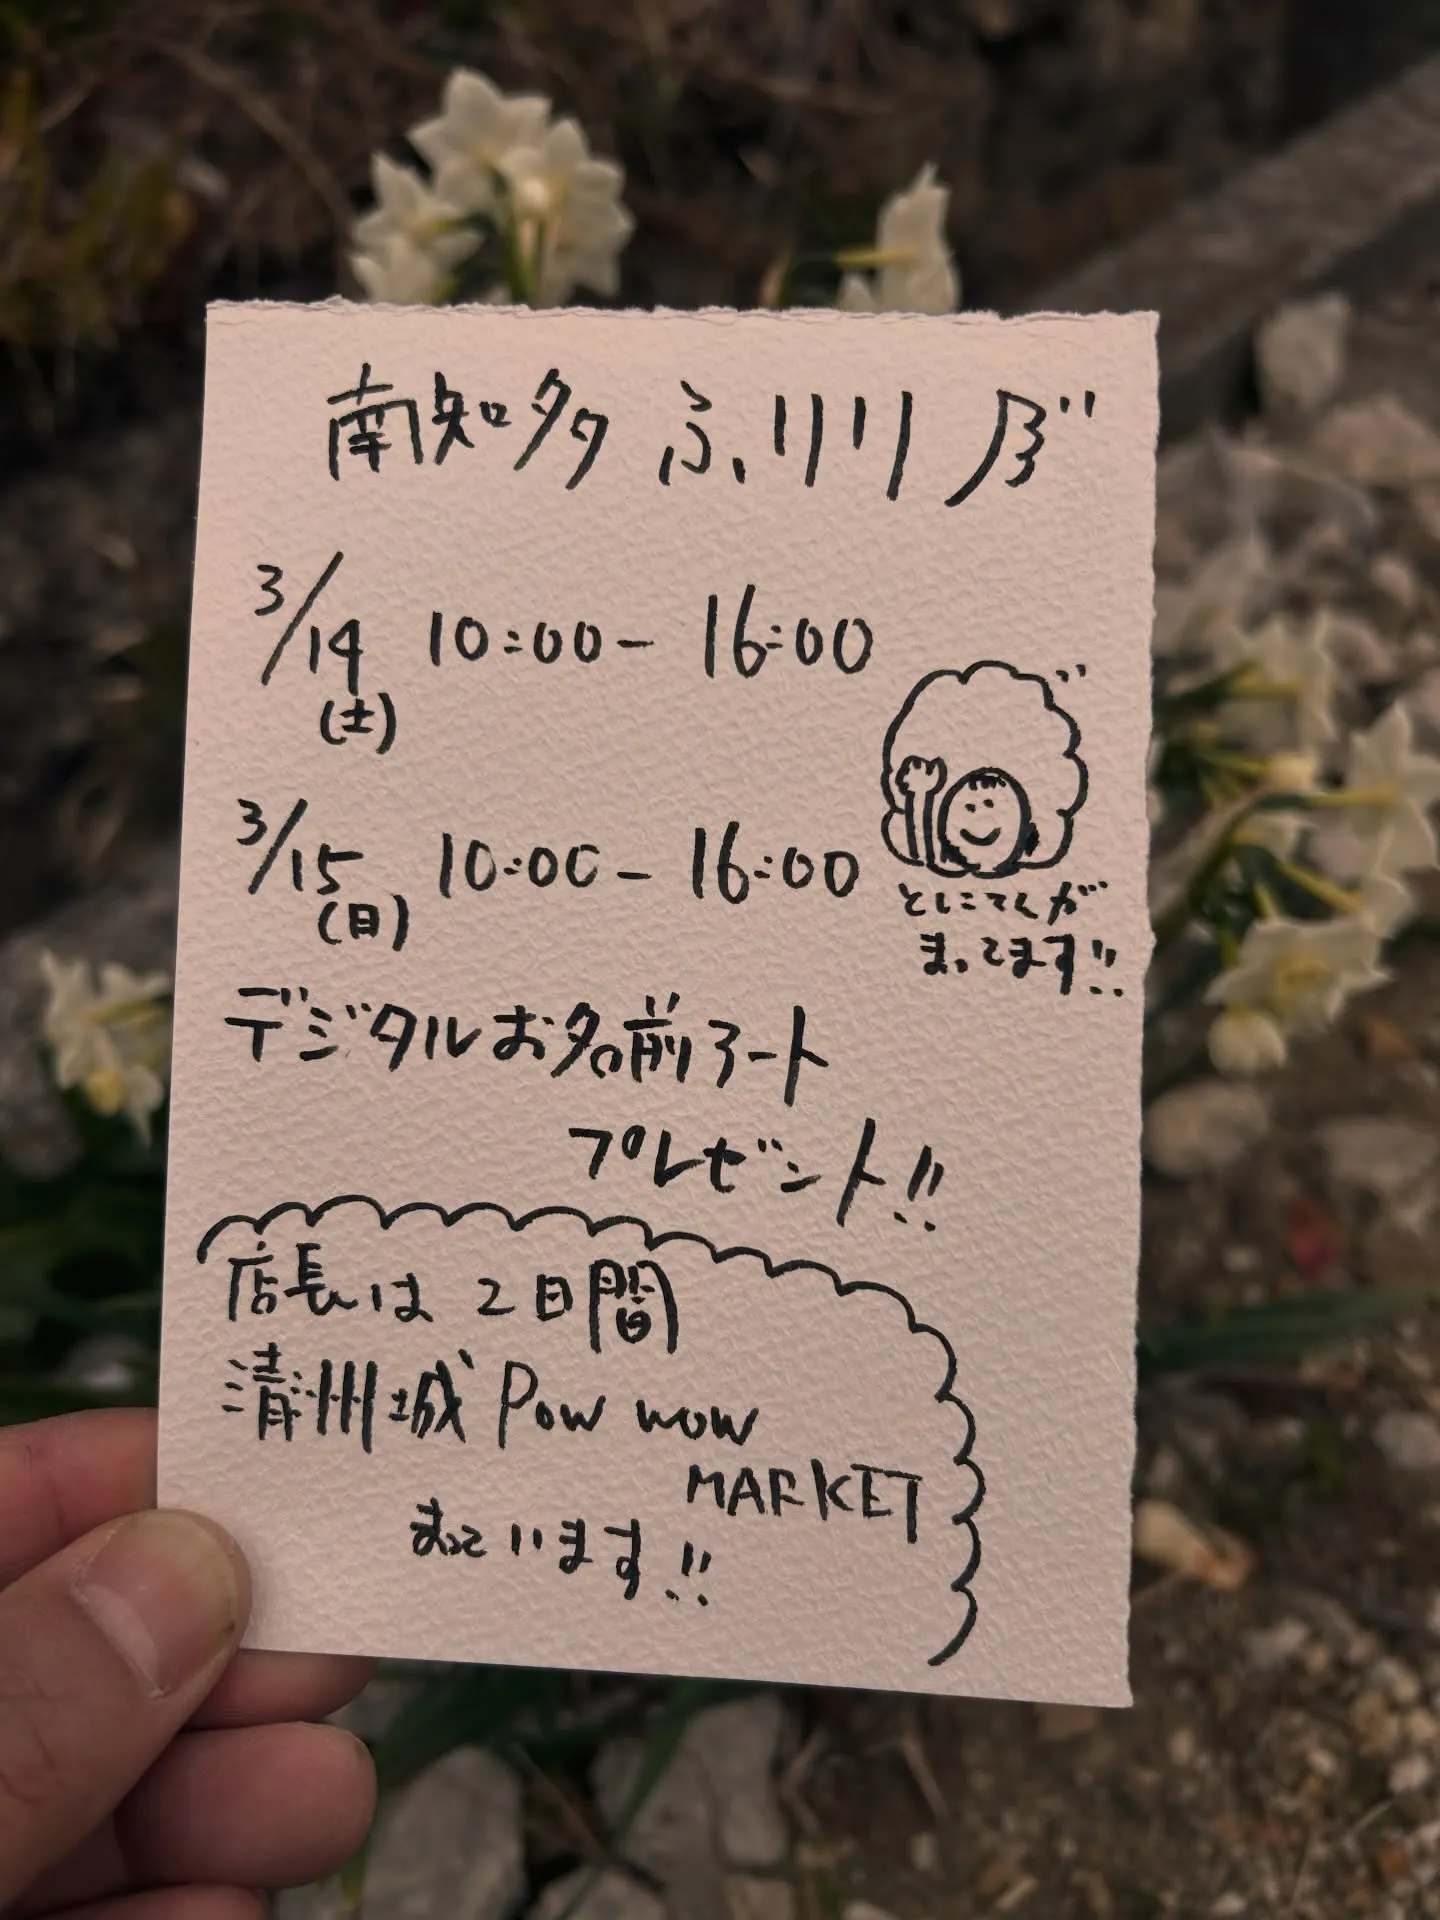 南知多ふ、リリーび
3/14(土) 10:00- 16:00
3/15(日) 10:00- 16:00
としこてんが
まってます!!
デジタルお名前アート
プレゼント!!
店長は2日間
清州城 Pow wow
MARKET
まっています!!